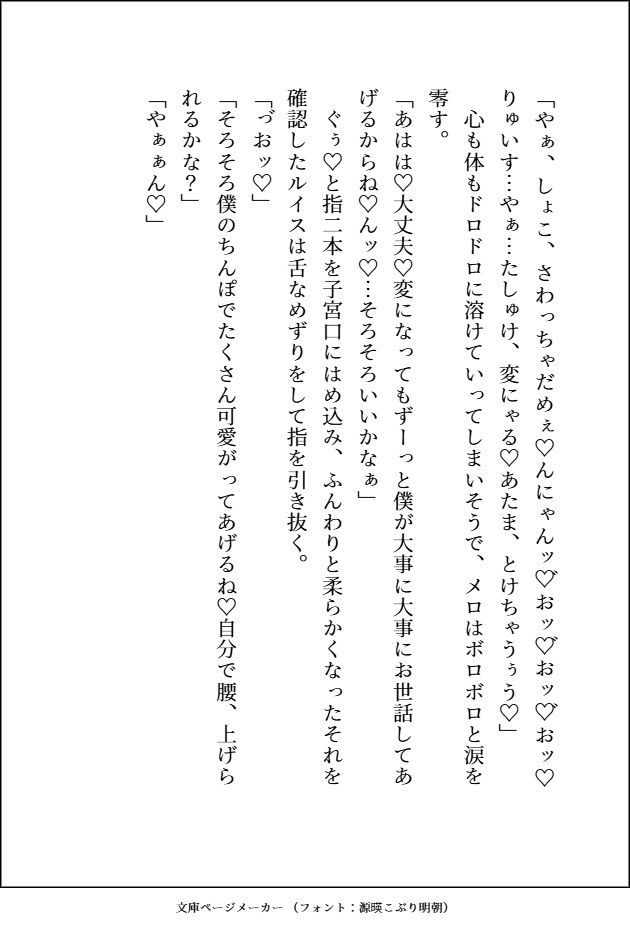 「やぁ、しょこ、さわっちゃだめぇ♡んにゃんッ♡゛おッ♡゛おッ♡゛おッ♡
りゅいす…やぁ…たしゅけ、変にゃる♡あたま、とけちゃうぅう♡」
　心も体もドロドロに溶けていってしまいそうで、メロはボロボロと涙を
零す。
「あはは♡大丈夫♡変になってもずーっと僕が大事に大事にお世話してあ
げるからね♡んッ♡…そろそろいいかなぁ」
　ぐぅ♡と指二本を子宮口にはめ込み、ふんわりと柔らかくなったそれを
確認したルイスは舌なめずりをして指を引き抜く。
「づおッ♡」
「そろそろ僕のちんぽでたくさん可愛がってあげるね♡自分で腰、上げら
れるかな？」
「やぁぁん♡」
文庫ページメーカー （フォント：源暎こぶり明朝）